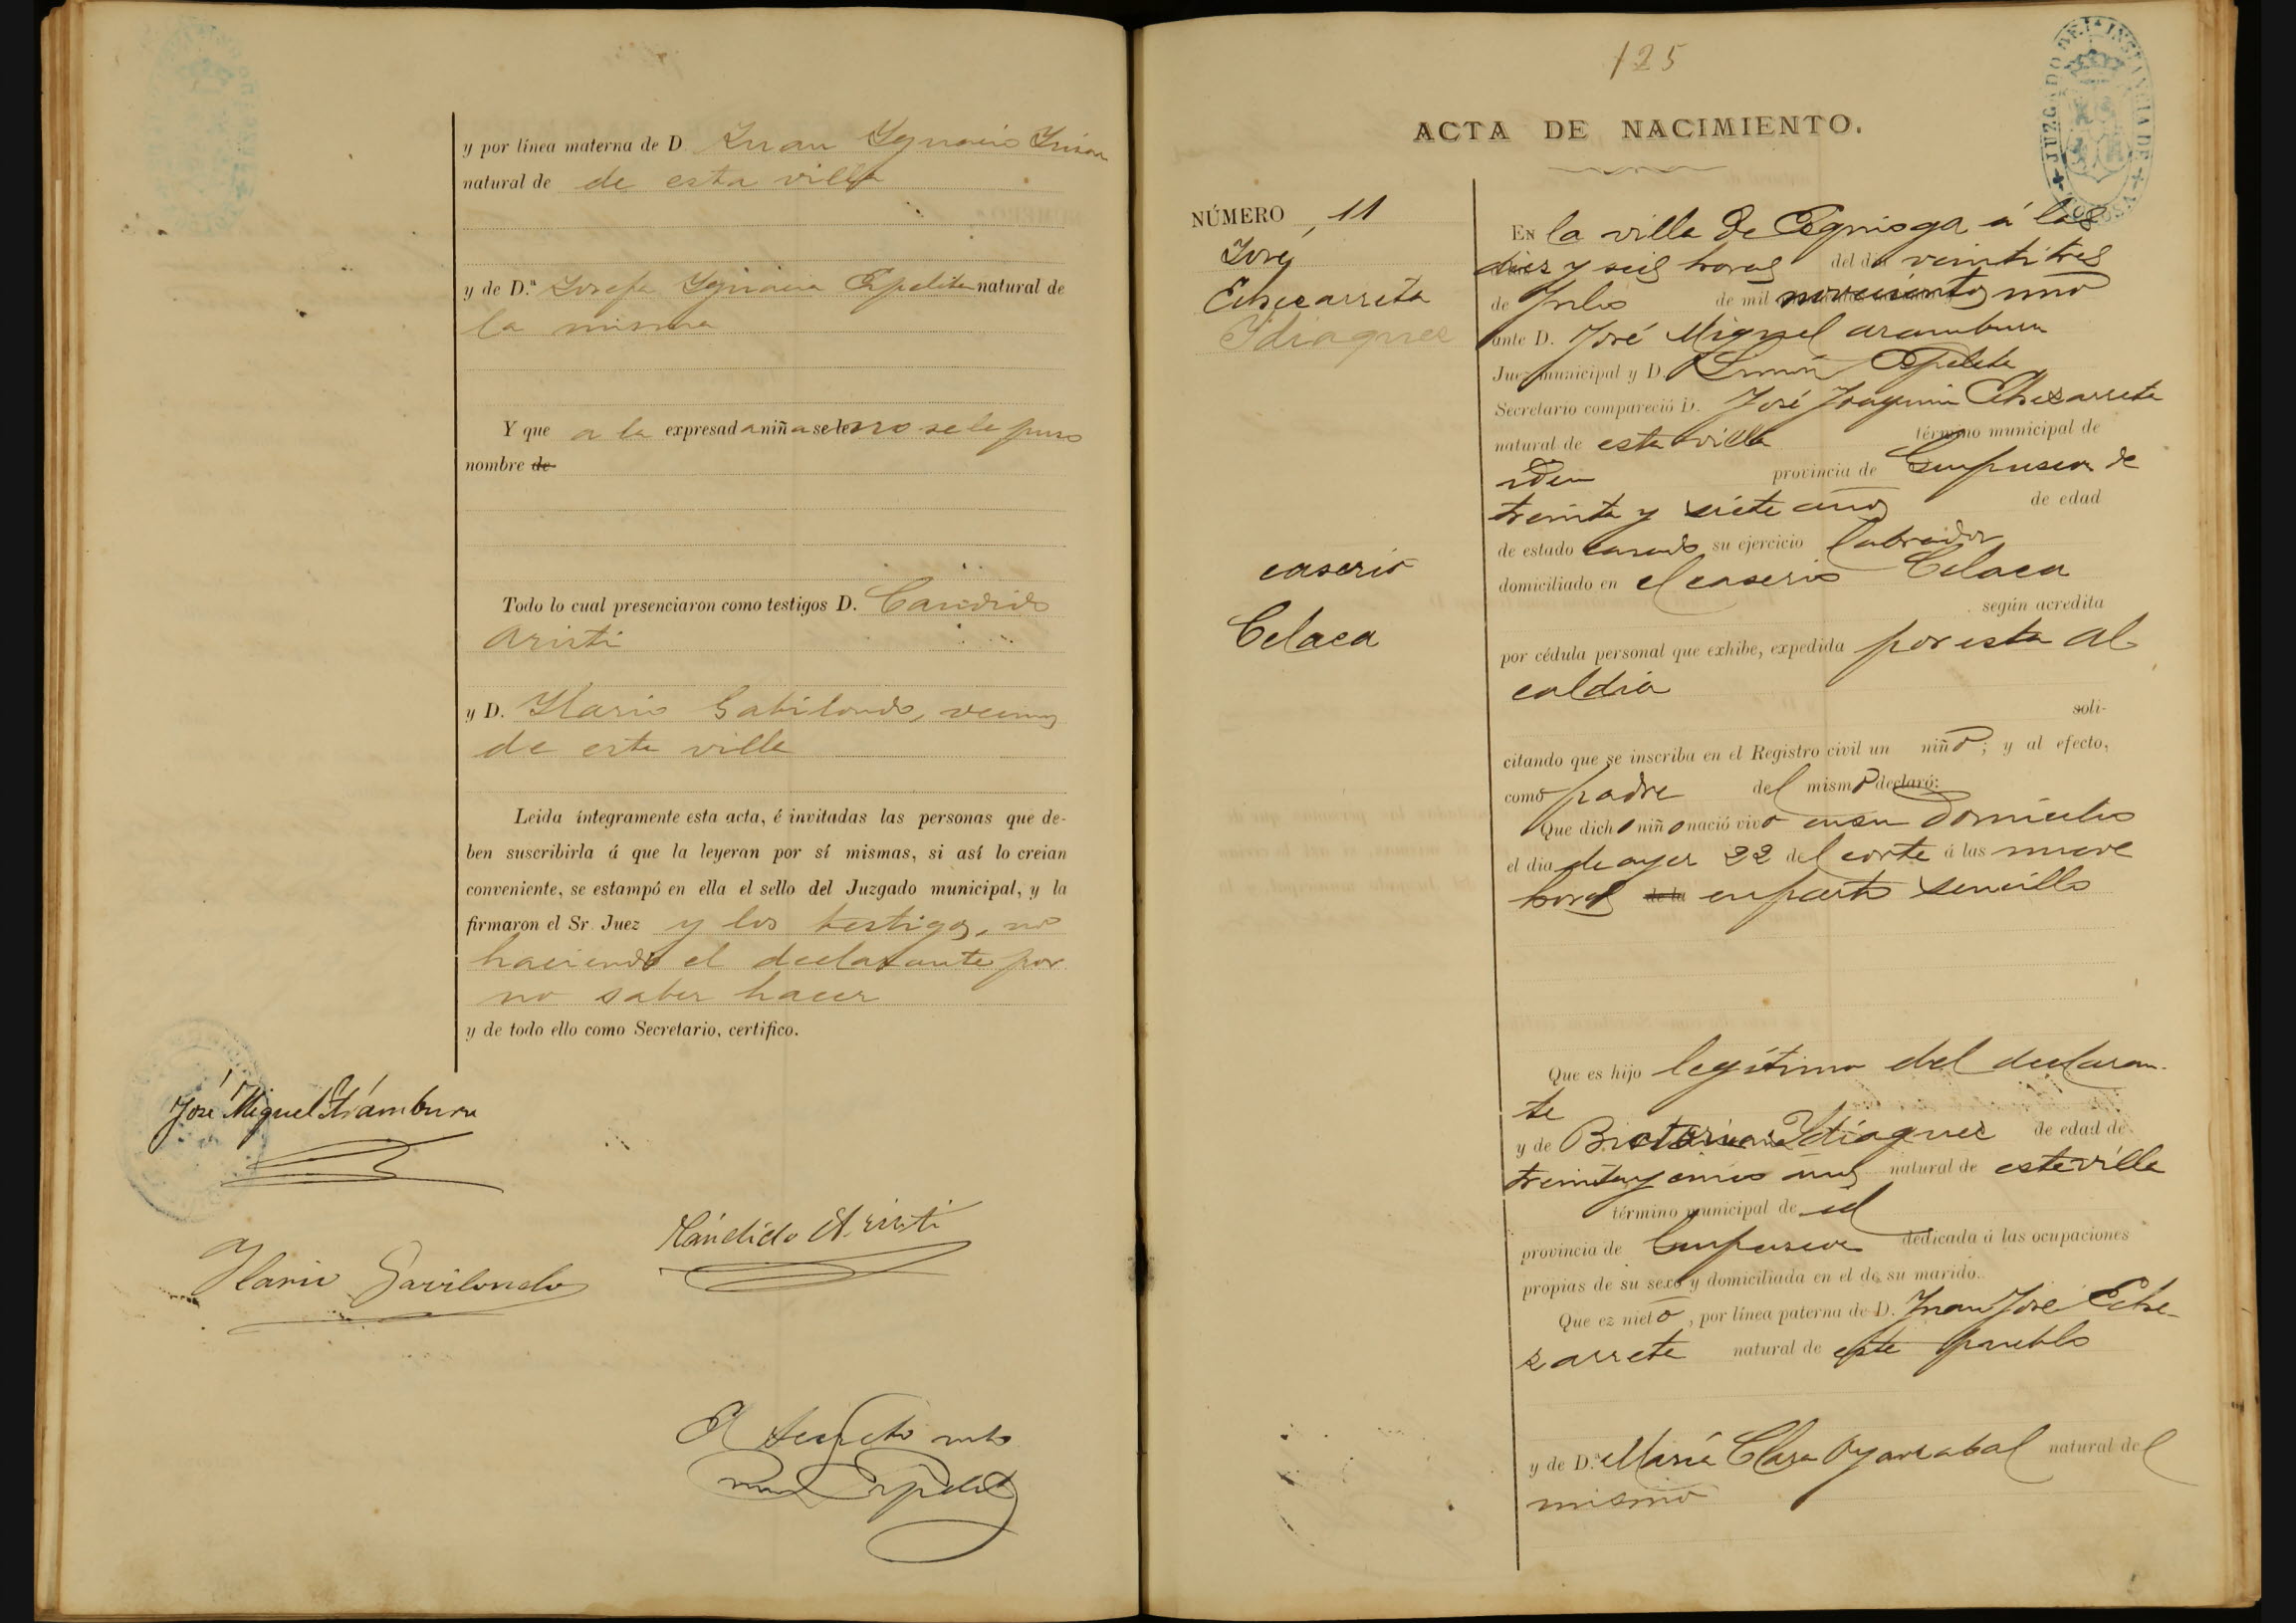 y por línea materna de D. Juan Ygnacio
natural de de esta villa
y de D.ª Josefa Ygnacia Espelita natural de
la misma
Y que a la expresada niña se le no se le puso
nombre de
Todo lo cual presenciaron como testigos D. Candido
Aristi
y D. Ylario Gabilondo, vecinos
de esta villa
Leida íntegramente esta acta, é invitadas las personas que de-
ben suscribirla á que la leyeran por sí mismas, si así lo creian
conveniente, se estampó en ella el sello del Juzgado municipal, y la
firmaron el Sr. Juez y los testigos, no
haciendo el declarante por
no saber hacer
y de todo ello como Secretario, certifico.
José Miguel Arámburu
Cándido Aristi
Ylario Gavilondo
El
125
ACTA DE NACIMIENTO.
JUZGADO DE 1ª INSTANCIA DE TOLOSA
NÚMERO 11
José
Echezarreta
Ydiaquez
caserio
Celaca
EN la villa de á las
diez y seis horas del dia veintitres
de Julio de mil novecientos uno
ante D. José Miguel aramburu
Juez municipal y D. Simón Espelita
Secretario compareció D. José Joaquin Echezarreta
natural de esta villa término municipal de
idem provincia de Guipuscoa de
treinta y siete años de edad
de estado casado su ejercicio labrador
domiciliado en el caserio Celaca
según acredita
por cédula personal que exhibe, expedida por esta Al-
caldia
soli-
citando que se inscriba en el Registro civil un niño; y al efecto,
como padre del mismo declaró:
Que dicho niño nació vivo en su domicilio
el dia de ayer 22 del corte á las nueve
horas de la en parto sencillo
Que es hijo legítimo del declaran-
te
y de Ydiaquez de edad de
treinta y cinco años natural de esta villa
término municipal de id
provincia de Guipuscoa dedicada á las ocupaciones
propias de su sexo y domiciliada en el de su marido.
Que es nieto, por línea paterna de D. Juan José Eche-
zarreta natural de este pueblo
y de D.ª María Clara Oyarzabal natural del
mismo